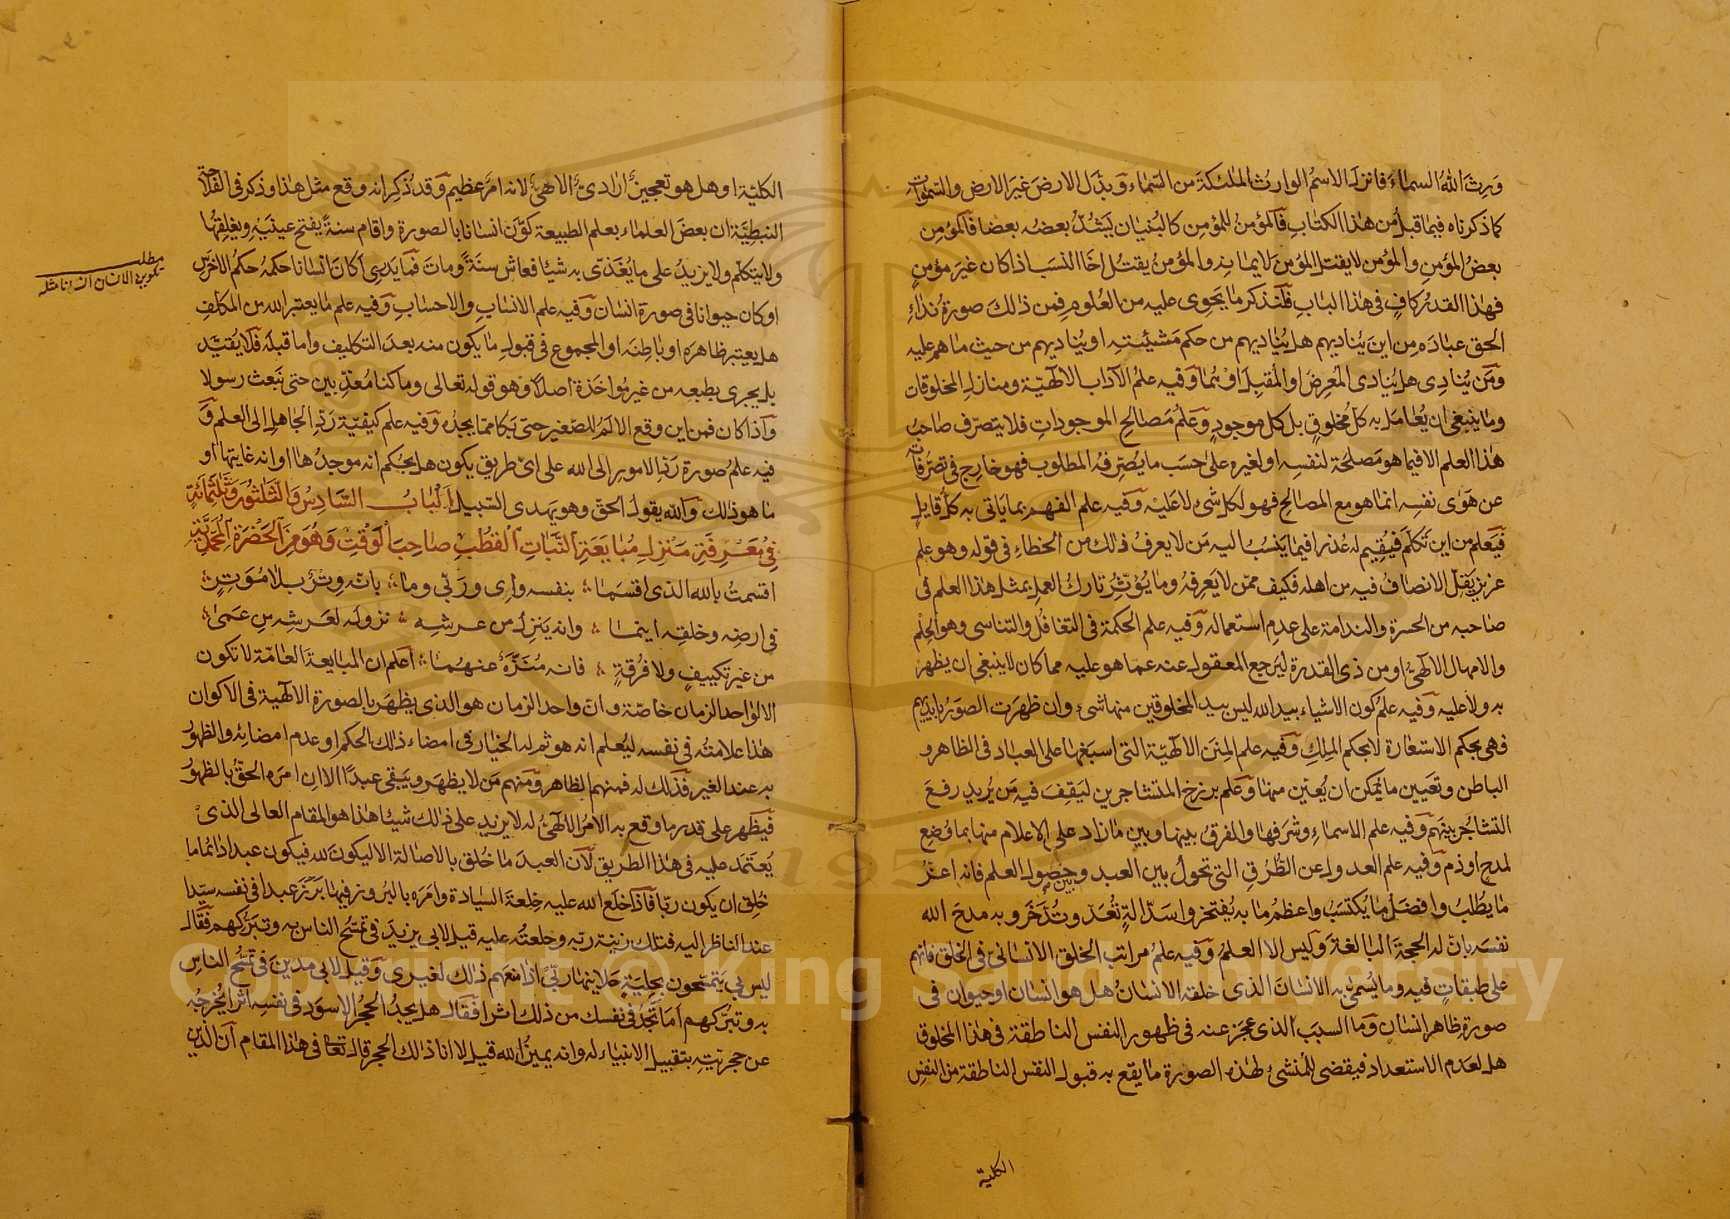 ورث الله السماء فانزل الاسم الوارث الملئكة من السماء وبدل الارض غير الارض والسموات
كما ذكرناه فيما قبل من هذا الكتاب فالمؤمن للمؤمن كالبنيان يشد بعضه بعضا فالمؤمن
بعض المؤمن والمؤمن لا يقتل المؤمن لايمانه والمؤمن يقتل اخا النسب اذا كان غير مؤمن
فهذا القدر كاف في هذا الباب فلنذكر ما يحوى عليه من العلوم فمن ذلك صورة نداء
الحق عباده من اين يناديهم هل يناديهم من حكم مشيئته او يناديهم من حيث ما هم عليه
ومن ينادى هل ينادى المعرض او المقبل او هما وفيه علم الآداب الالهية ومنازل المخلوقات
وما ينبغى ان يعامل به كل مخلوق بل كل موجود وعلم مصالح الموجودات فلا يتصرف صاحب
هذا العلم الا فيما هو مصلحة لنفسه او لغيره على حسب ما يصرفه المطلوب فهو خارج فى تصرفاته
عن هوى نفسه انما هو مع المصالح فهو لكل شىء لا عليه وفيه علم الفهم بما ياتى به كل قايل
فيعلم من اين تكلم فيقيم له عذرا فيما ينسب اليه من لا يعرف ذلك من الخطاء فى قوله وهو علم
عزيز يقل الانصاف فيه من اهله فكيف ممن لا يعرفه وما يؤثر تارك العمل بمثل هذا العلم فى
صاحبه من الحسرة والندامة على عدم استعماله وفيه علم الحكمة فى التغافل والتناسى وهو الحلم
والامهال الالهى ومن ذى القدرة ليرجع المعقول عنه عما هو عليه مما كان لا ينبغى ان يظهر
به ولا عليه وفيه علم كون الاشياء بيد الله ليس بيد المخلوقين منها شىء وان ظهرت الصور بايديهم
فهى بحكم الاستعارة لا بحكم الملك وفيه علم المنن الالهية التى اسبغها على العباد فى الظاهر و
الباطن وتعيين ما يمكن ان يعين منها وعلم برزخ المتشاجرين ليقف فيه من يريد رفع
التشاجر بينهم وفيه علم الاسماء وشرفها والفرق بينها وبين ما زاد على الاعلام منها بما وضع
لمدح او ذم وفيه علم العدول عن الطرق التى تحول بين العبد وبين حصول العلم فانه اعز
ما يطلب وافضل ما يكتسب واعظم ما به يفتخر واسد الة تعد وتدخر وبه مدح الله
نفسه بان له الحجة البالغة وليس الا العلم وفيه علم مراتب الخلق الانسانى فى الخلق فانهم
على طبقات فيه وما يسمى به الانسان الذى خلقه الانسان هل هو انسان او حيوان فى
صورة ظاهر انسان وما السبب الذى عجز عنه فى ظهور النفس الناطقة فى هذا المخلوق
هل لعدم الاستعداد فيقضى المنشىء لهذه الصورة ما يقع به قبول النفس الناطقة من النفس
الكلية
الكلية او هل هو تعجيز ارادى الاهى لانه امر عظيم وقد ذكر انه وقع مثل هذا وذكر فى الفلاحة
النبطية ان بعض العلماء بعلم الطبيعة كون انسانا بالصورة واقام سنة يفتح عينيه ويغلقها
ولا يتكلم ولا يزيد على ما يغذى به شيئا فعاش سنة ومات فما يدرى اكان انسانا حكمه حكم الاخرس
او كان حيوانا فى صورة انسان وفيه علم الانساب والاحساب وفيه علم ما يعتبر الله من المكلف
هل يعتبر ظاهره او باطنه او المجموع فى قبول ما يكون منه بعد التكليف واما قبله فلا يقتيد
بل يجرى بطبعه من غير مؤاخذة اصلا وهو قوله تعالى وما كنا معذبين حتى نبعث رسولا
واذا كان فمن اين وقع الالم للصغير حتى بكا مما يجده وفيه علم كيفية رد الجاهل الى العلم و
فيه علم صورة رد الامور الى الله على اى طريق يكون هل بحكم انه موجدها او انه غايتها او
ما هو ذلك والله يقول الحق وهو يهدى السبيل الباب السادس والثلثون وثلثمائة
فى معرفة منزل مبايعة النبات القطب صاحب الوقت وهو من الحضرة المحمدية
اقسمت بالله الذى اقسما بنفسه وارى وربى وما بانه وثر بلا موتر
فى ارضه وخلقه اينما وانه ينزل من عرشه نزوله لعرشه من عمى
من غير تكييف ولا فرقة فانه منزه عنهما اعلم ان المبايعة العامة لا تكون
الا لواحد الزمان خاصة وان واحد الزمان هو الذى يظهر بالصورة الالهية فى الاكوان
هذا علامته فى نفسه ليعلم انه هو ثم له الخيار فى امضاء ذلك الحكم او عدم امضائه والظهور
به عند الغير فذلك له فمنهم الظاهر ومنهم من لا يظهر ويبقى عبدا الا ان امره الحق بالظهور
فيظهر على قدر ما وقع به الامر الالهى له لا يزيد على ذلك شيئا هذا هو المقام العالى الذى
يعتمد عليه فى هذا الطريق لان العبد ما خلق بالاصالة الا ليكون لله فيكون عبدا دائما ما
خلق ان يكون ربا فاذا خلع الله عليه خلعة السيادة وامره بالبروز فيها برز عبدا فى نفسه سيدا
عند الناظر اليه فتلك زينة ربه وخلعته عليه قيل لابى يزيد فى تمسح الناس به وتبركهم فقال
ليس بى يتمسحون بحلية حلانيها ربى اذا منعهم ذلك لغيرى وقيل لابى مدين فى تمسح الناس
به وتبركهم اما تجد فى نفسك من ذلك اثرا فقال هل يجد الحجر الاسود فى نفسه اثرا يخرجه
عن حجريته بتقبيل الانبياء له وانه يمين الله قيل لا انا ذلك الحجر قال تعالى فى هذا المقام ان الذين
مطلب
تكوين الانسان
Copyright © King Saud University
195